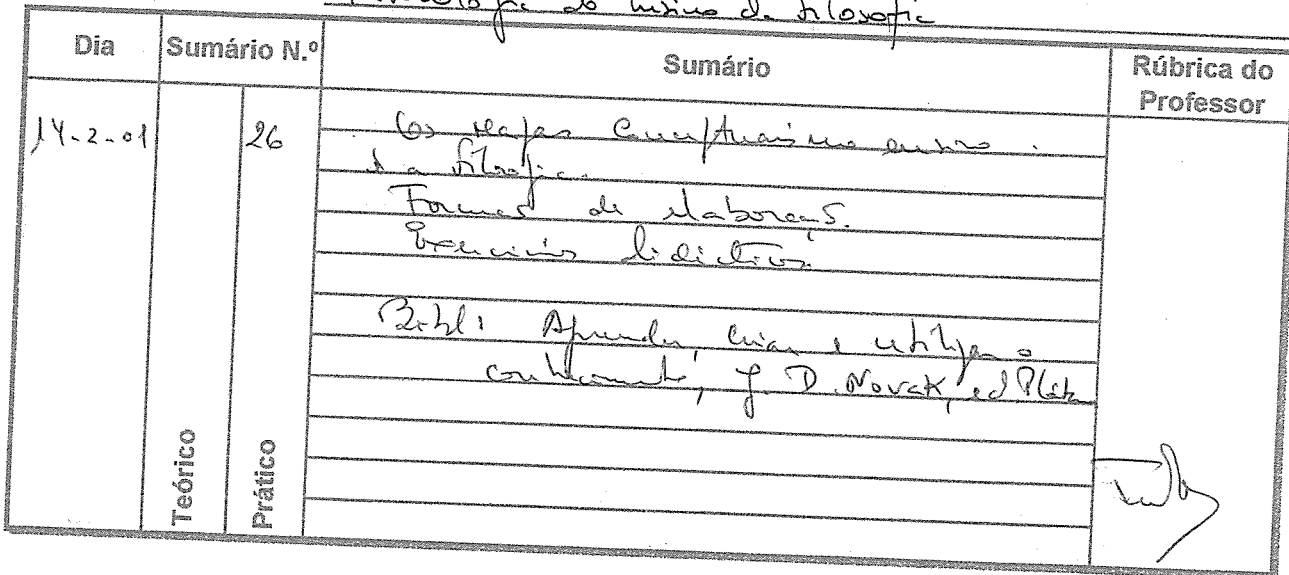 Metodologia do Ensino da Filosofia
Dia
Sumário N.º
Sumário
Rúbrica do
Professor
14-2-01
26
Os mapas conceptuais no ensino
da filosofia.
Formas de elaboração.
Exercícios didácticos.
Bibl: Aprender, criar e utilizar o
conhecimento, J. D. Novak, ed Plátano
Teórico
Prático